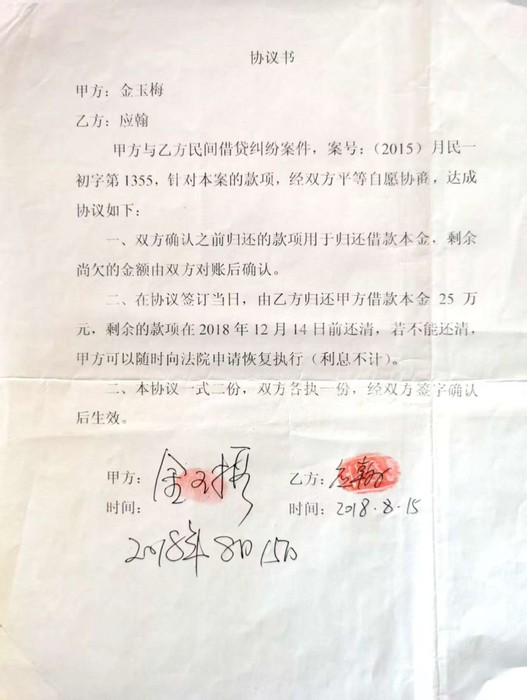 协议书
甲方：金玉梅
乙方：应翰
甲方与乙方民间借贷纠纷案件，案号：（2015）月民一
初字第1355，针对本案的款项，经双方平等自愿协商，达成
协议如下：
一、双方确认之前归还的款项用于归还借款本金，剩余
尚欠的金额由双方对账后确认。
二、在协议签订当日，由乙方归还甲方借款本金 25 万
元，剩余的款项在 2018 年 12 月 14 日前还清，若不能还清，
甲方可以随时向法院申请恢复执行（利息不计）。
二、本协议一式二份，双方各执一份，经双方签字确认
后生效。
甲方：金玉梅 乙方：应翰
时间： 时间：2018.8.15
2018年8月15日